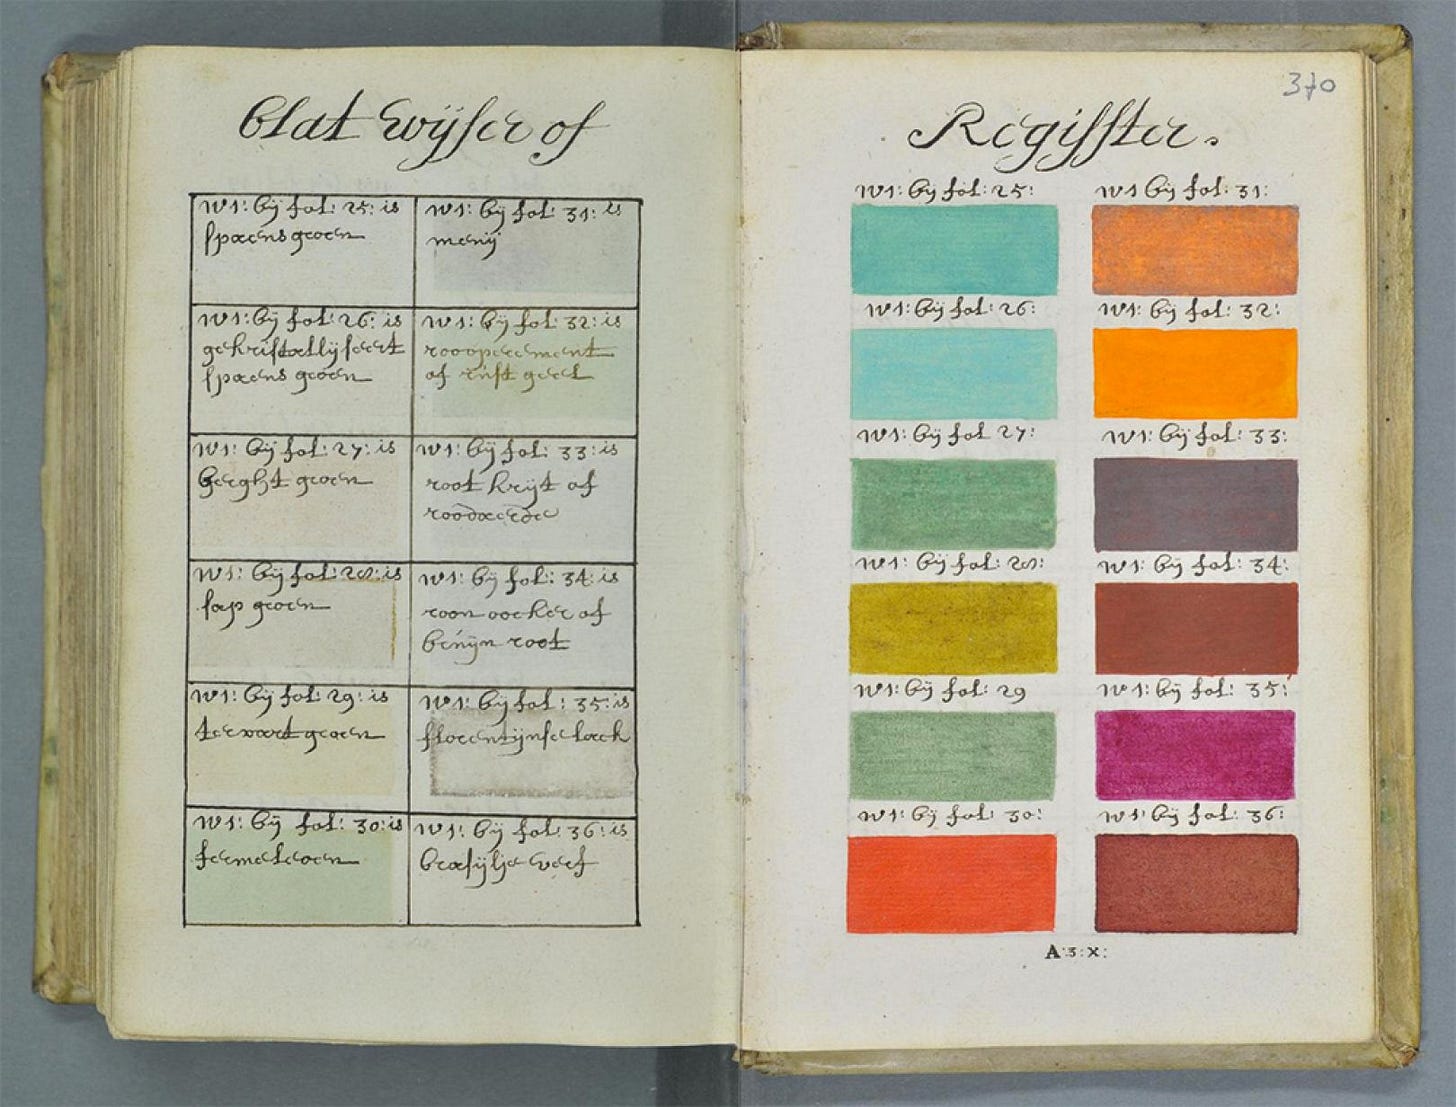 Blat wijser of
w1: bij fol: 25: is
spaens groen
w1: bij fol: 31: is
menij
w1: bij fol: 26: is
gekristallijseert
spaens groen
w1: bij fol: 32: is
roooperement
of rust geel
w1: bij fol: 27: is
berght groen
w1: bij fol: 33: is
root krijt of
roodaerde
w1: bij fol: 28: is
sap groen
w1: bij fol: 34: is
roon oocker of
bruijn root
w1: bij fol: 29: is
terwart groen
w1: bij fol: 35: is
florentijnse lack
w1: bij fol: 30: is
fermeleoen
w1: bij fol: 36: is
brasijlje verf
370
Regisster.
w1: bij fol: 25:
w1 bij fol: 31:
w1: bij fol: 26:
w1: bij fol: 32:
w1: bij fol 27:
w1: bij fol: 33:
w1: bij fol: 28:
w1: bij fol: 34:
w1: bij fol: 29
w1: bij fol: 35:
w1: bij fol: 30:
w1: bij fol: 36:
A:3:X: